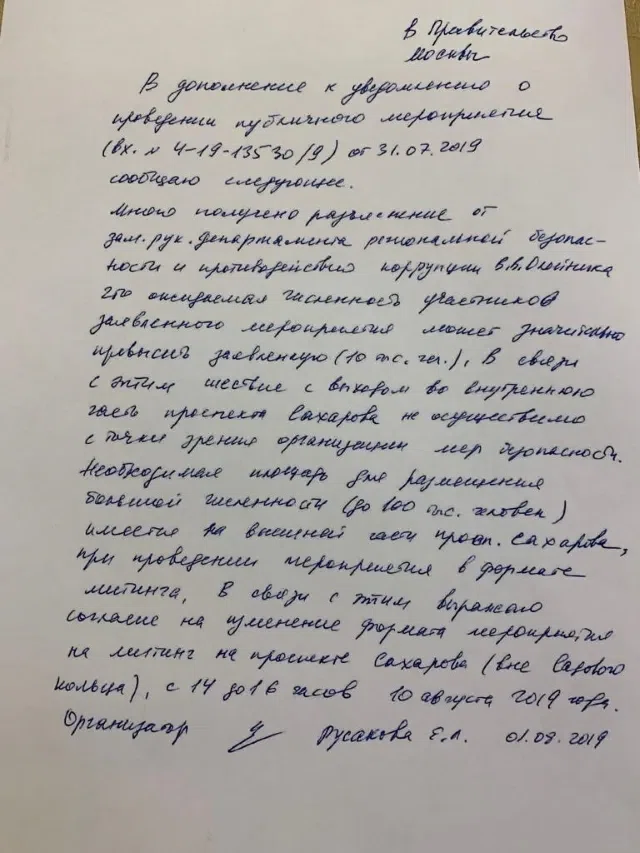 в Правительство
Москвы
В дополнение к уведомлению о
проведении публичного мероприятия
(вх. № 4-19-13530/9) от 31.07.2019
сообщаю следующее.
Мною получено разъяснение от
зам. рук. департамента региональной безопас-
ности и противодействию коррупции В.В.Олейника
что ожидаемая численность участников
заявленного мероприятия может значительно
превысить заявленную (10 тыс. чел.), В связи
с этим шествие с выходом во внутреннюю
часть проспекта Сахарова не осуществимо
с точки зрения организации мер безопасности.
Необходимая площадь для размещения
большой численности (до 100 тыс. человек)
имеется на внешней части просп. Сахарова,
при проведении мероприятия в формате
митинга, В связи с этим выражаю
согласие на изменение формата мероприятия
на митинг на проспекте Сахарова (вне Садового
кольца), с 14 до 16 часов 10 августа 2019 года.
Организатор Русакова Е.Л. 01.08.2019